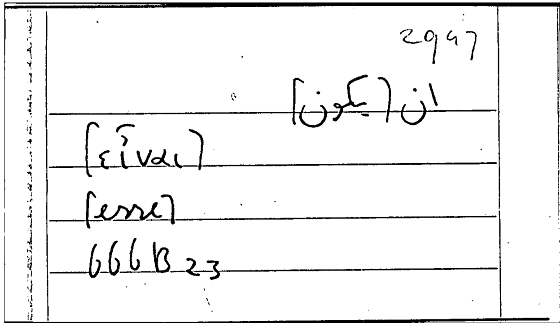 2997
ان [يكون]
[εἶναι]
[esse]
666B 23